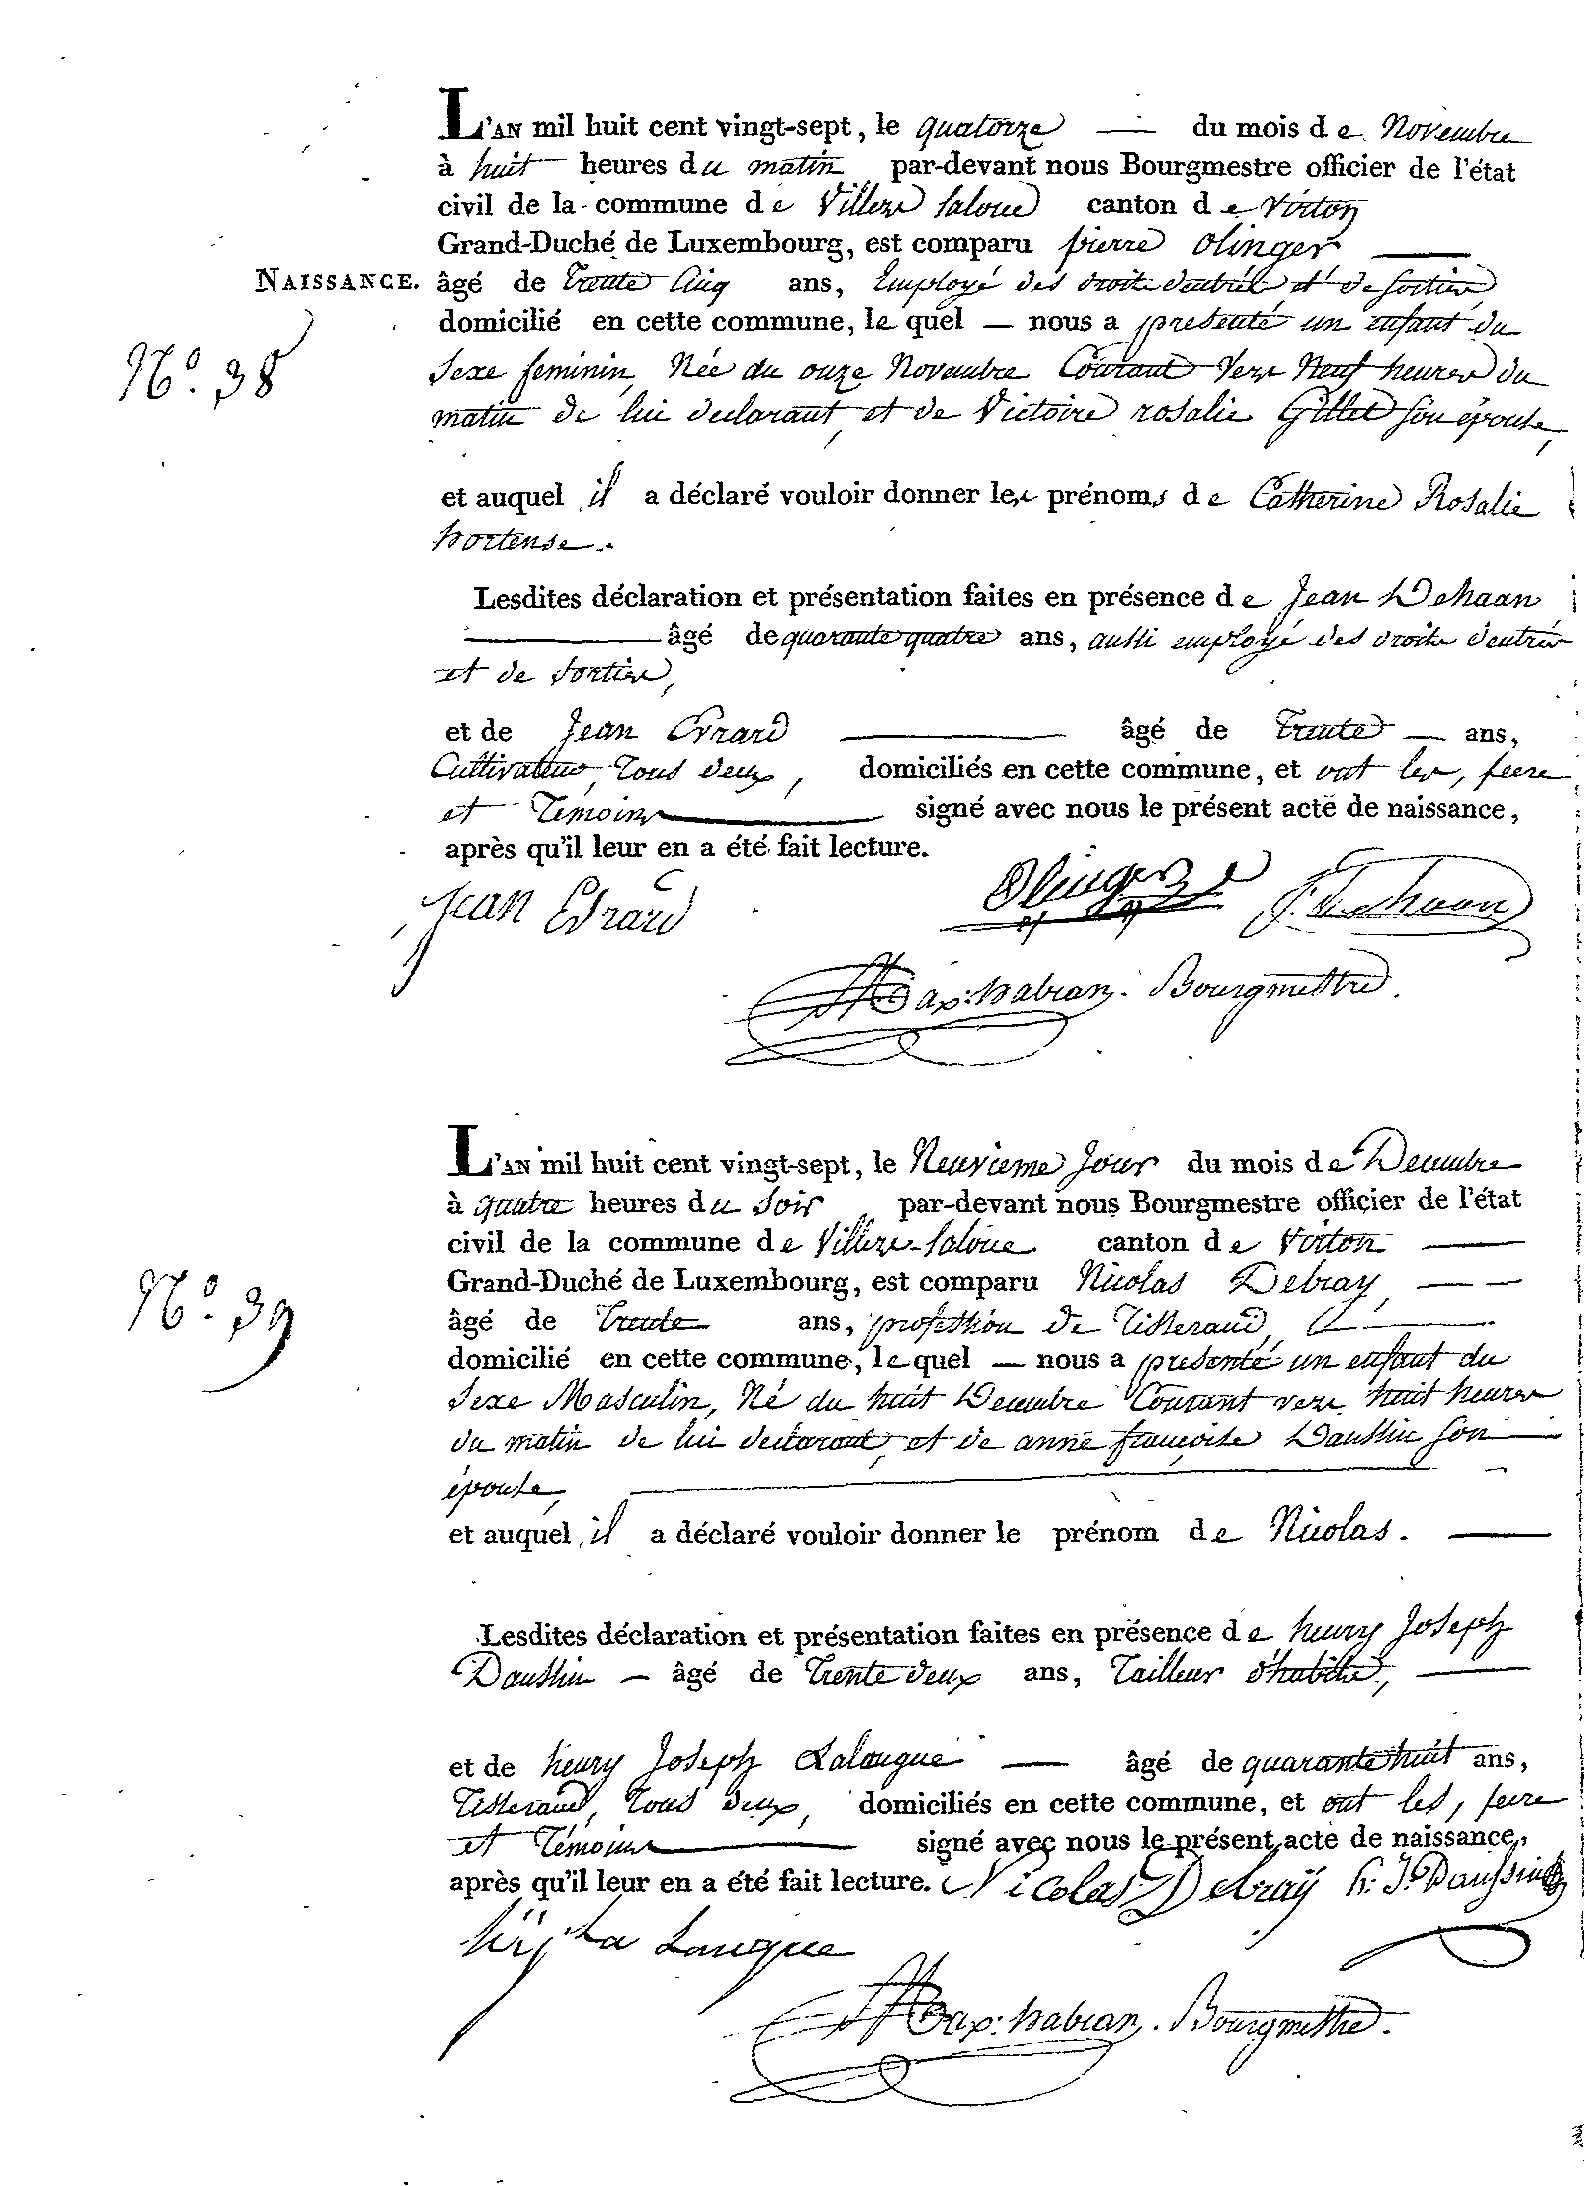 L'AN mil huit cent vingt-sept, le quatorze — du mois de Novembre
à huit heures du matin par-devant nous Bourgmestre officier de l'état
civil de la commune de Villers laloue canton de virton
Grand-Duché de Luxembourg, est comparu pierre Olinger —
NAISSANCE. âgé de trente Cinq ans, Employé des droits d'entrée, et de sortie,
domicilié en cette commune, le quel — nous a presenté un enfant du
N.o 38
Sexe feminin, Née du onze Novembre Courant vers Neuf heures du
matin de lui declarant, et de Victoire rosalie Gillet son épouse,
et auquel il a déclaré vouloir donner les prénoms de Catherine Rosalie
hortense.
Lesdites déclaration et présentation faites en présence de Jean Dehaan
— âgé de quarante quatre ans, aussi employé des droits d'entrée
et de sortie,
et de Jean Evrard — âgé de trente — ans,
Cultivateur, tous deux, domiciliés en cette commune, et ont les, pere
et Témoins — signé avec nous le présent acte de naissance,
après qu'il leur en a été fait lecture.
Jean Evrard Olinger J. Dehaan
Max: habran. Bourgmestre.
L'AN mil huit cent vingt-sept, le Neuvieme Jour du mois de Decembre
à quatre heures du Soir par-devant nous Bourgmestre officier de l'état
civil de la commune de Villers-laloue canton de Virton —
Grand-Duché de Luxembourg, est comparu Nicolas Debray, — —
N.o 39
âgé de trente ans, profession de Tisserand, —
domicilié en cette commune, le quel — nous a presenté un enfant du
Sexe Masculin, Né du huit Decembre Courant vers huit heures
du matin de lui declarant, et de anne françoise Daussin son —
épouse, —
et auquel il a déclaré vouloir donner le prénom de Nicolas. —
Lesdites déclaration et présentation faites en présence de henry Joseph
Daussin — âgé de trente deux ans, Tailleur d'habits, —
et de henry Joseph Lalougue — âgé de quarante huit ans,
Tisserand, tous deux, domiciliés en cette commune, et ont les, pere
et Témoins — signé avec nous le présent acte de naissance,
après qu'il leur en a été fait lecture. Nicolas Debraÿ h: J: Daussin
La Lougue
Max: habran. Bourgmestre.